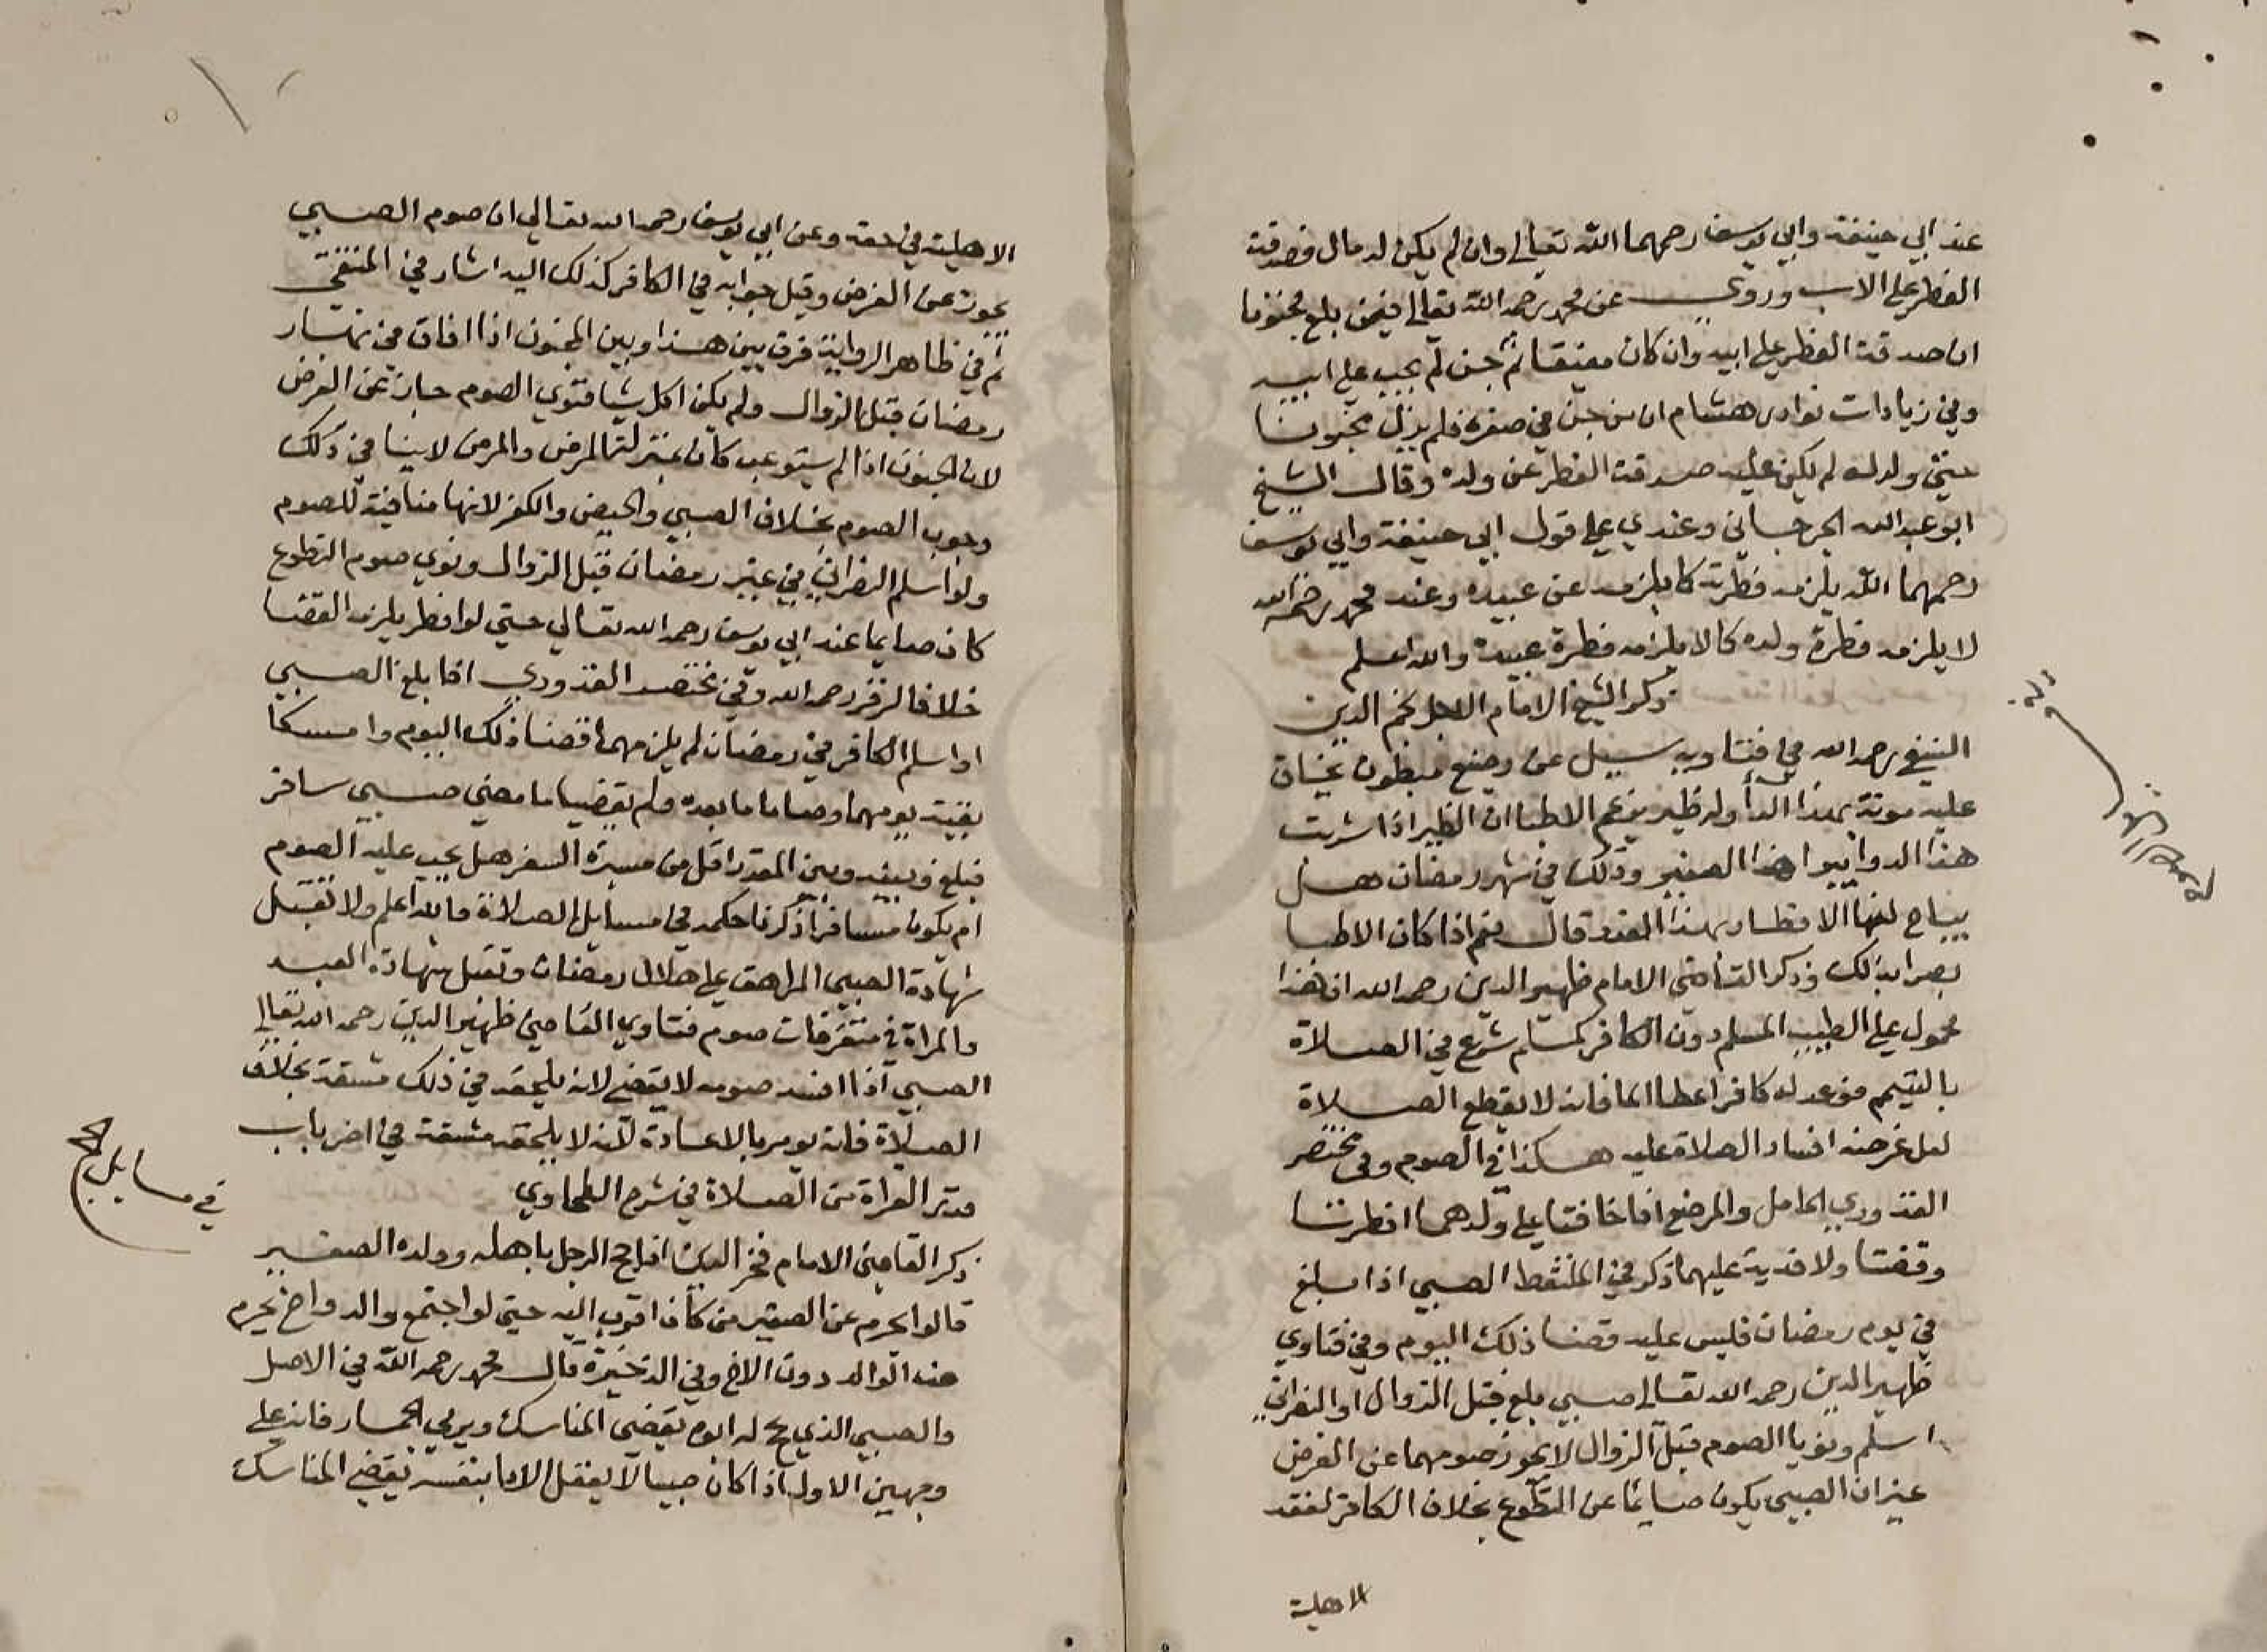 عند ابي حنيفة وابي يوسف رحمهما الله تعالى وان لم يكن له مال فصدقة
الفطر على الاب وروي عن محمد رحمه الله تعالى فيمن بلغ مجنونا
ان صدقة الفطر على ابيه وان كان مفيقا ثم جن لم يجب على ابيه
وفي زيادات نوادر هشام ان من جن في صغره فلم يزل مجنونا
حتى ولد له لم يكن عليه صدقة الفطر عن ولده وقال الشيخ
ابو عبد الله الجرجاني وعندي على قول ابي حنيفة وابي يوسف
رحمهما الله يلزمه فطرته كما يلزمه عن عبيده وعند محمد رحمه الله
لا يلزمه فطرة ولده كما لا يلزمه فطرة عبيده والله اعلم
ذكر الشيخ الامام الاجل نجم الدين
النسفي رحمه الله في فتاويه سيل عن رضيع مبطون يخاف
عليه موته بهذا الدأ وله ظير يزعم الاطبا ان الظير اذا شربت
هذا الدوا يبرا هذا الصغير وذلك في شهر رمضان هل
يباح لها الافطار بهذا العذر قال نعم اذا كان الاطبا
بصرا بذلك وذكر القاضي الامام ظهير الدين رحمه الله ان هذا
محمول على الطبيب المسلم دون الكافر كمسلم شرع في الصلاة
بالتيمم فوعد له كافر اعطا الما فانه لا يقطع الصلاة
لعل غرضه افساد الصلاة عليه هكذا في الصوم وفي مختصر
القدوري الحامل والمرضع اذا خافتا على ولدهما افطرتا
وقضتا ولا فدية عليهما ذكر في الملتقط الصبي اذا بلغ
في يوم رمضان فليس عليه قضا ذلك اليوم وفي فتاوي
ظهير الدين رحمه الله تعالى صبي بلغ قبل الزوال او النصراني
اسلم ونويا الصوم قبل الزوال لا يجوز صومهما عن الفرض
غير ان الصبي يكون صايمًا عن التطوع بخلاف الكافر لفقد
الاهلية
الاهلية في حقه وعن ابي يوسف رحمه الله تعالي ان صوم الصبي
يجوز عن الفرض وقيل جوابه في الكافر كذلك اليه اشار في المنتقى
ثم في ظاهر الرواية فرق بين هذا وبين المجنون اذا افاق في نهار
رمضان قبل الزوال ولم يكن اكل شيا فنوي الصوم جاز عن الفرض
لان الجنون اذا لم يستوعب كان بمنزلة المرض والمرض لا ينافي ذلك
وجوب الصوم بخلاف الصبي والحيض والكفر لانها منافية للصوم
ولو اسلم النصراني في غير رمضان قبل الزوال ونوي صوم التطوع
كان صايما عند ابي يوسف رحمه الله تعالي حتي لو افطر يلزمه القضا
خلافا لزفر رحمه الله وفي مختصر القدوري اذا بلغ الصبي
او اسلم الكافر في رمضان لم يلزمهما قضا ذلك اليوم وامسكا
بقية يومهما وصاما ما بعده ولم يقضيا ما مضي صبي سافر
فبلغ وبينه وبين المقصد اقل من مسيرة السفر هل يجب عليه الصوم
ام يكون مسافرا ذكرنا حكمه في مسايل الصلاة والله اعلم ولا تقبل
شهادة الصبي المراهق على هلال رمضان وتقبل شهادة العبد
والمراة في متفرقات صوم فتاوي القاضي ظهير الدين رحمه الله تعالى
الصبي اذا افسد صومه لا يقضي لانه يلحقه في ذلك مشقة بخلاف
الصلاة فانه يومر بالاعادة لانه لا يلحقه مشقة في اخر باب
قدر القراة من الصلاة في شرح الطحاوي
في مسايل الحج
ذكر القاضي الامام فخر الدين اذا حج الرجل باهله وولده الصغير
قالوا يحرم عن الصغير من كان اقرب اليه حتى لو اجتمع والد واخ يحرم
عنه الوالد دون الاخ وفي الذخيرة قال محمد رحمه الله في الاصل
والصبي الذي يحج له ابوه يقضي المناسك ويرمي الجمار فانه على
وجهين الاول اذا كان صبيا لا يعقل الادا بنفسه يقضي المناسك